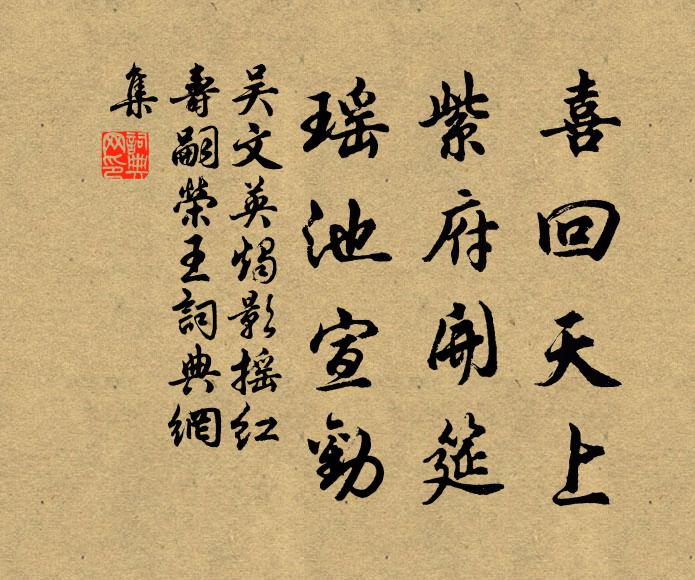 喜回天上
紫府開筵
瑶池宣勸
吴文英燭影摇紅
壽嗣榮王詞典網
集
詞典網印